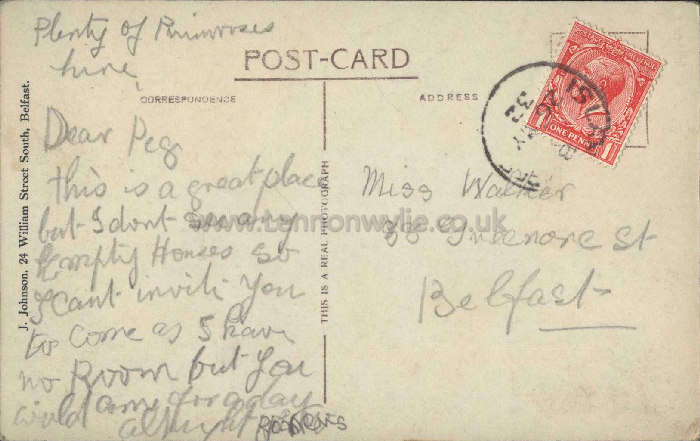 Plenty of Primroses
here
POST-CARD
CORRESPONDENCE
ADDRESS
Dear Peg
this is a great place
but I dont see any
Empty Houses so
I cant invite you
to come as I have
no Room but you
could come for a day
alright
Miss Walker
38 St
Belfast
THIS IS A REAL PHOTOGRAPH
J. Johnson, 24 William Street South, Belfast.
ONE PENNY
1
1
32
www.lennonwylie.co.uk